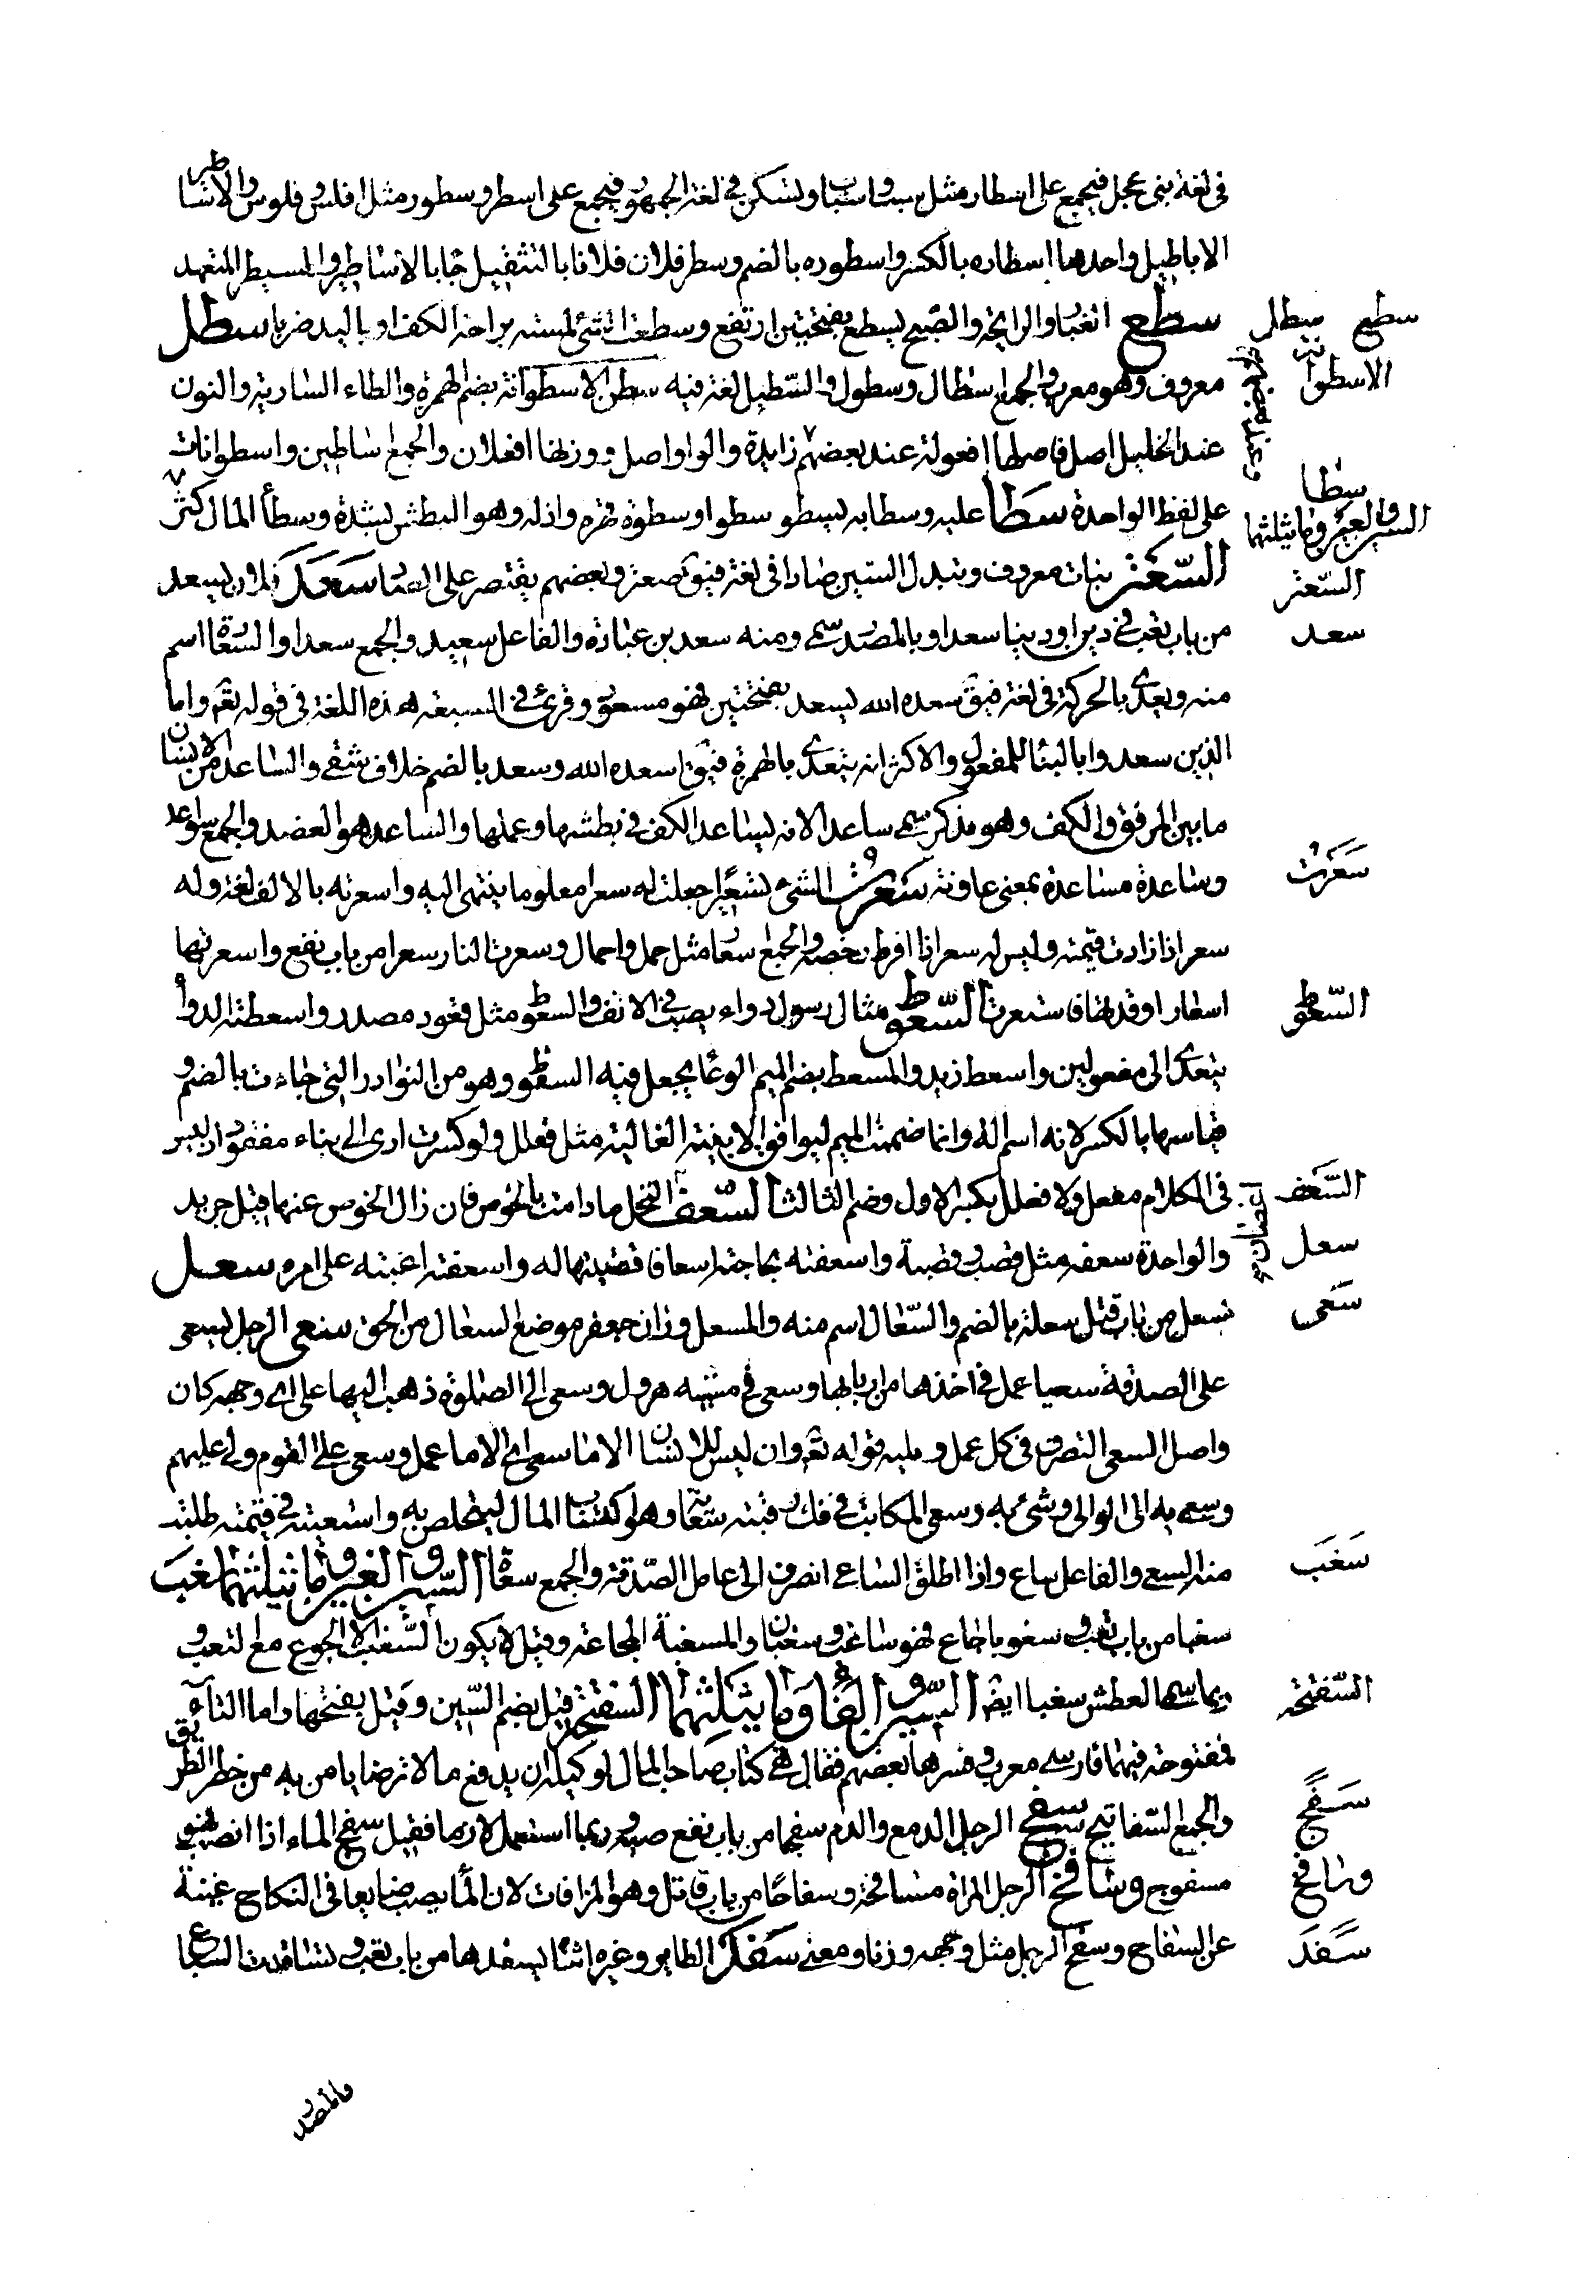 في لغة بنى عجل فيجمع على اسطار مثل سبب واسباب وتسكن في لغة الجمهور فيجمع على اسطر وسطور مثل افلس وفلوس والاساطير
الاباطيل واحدها اسطاره بالكسر واسطوره بالضم وسطر فلان فلانا بالتثقيل جابا بالاساطير والمسيطر المتعهد
سطع الغبار والرايحة والصبح يسطع بفتحتين ارتفع وسطعت الشئ لمسته براحة الكف او باليد ضربا سطل
معروف وهو معرب والجمع اسطال وسطول والسطيل لغة فيه سطن الاسطوانة بضم الهمزة والطاء السارية والنون
عند الخليل اصل فاصلها افعولة عند بعضهم زايدة والواو اصل ووزنها افعلان والجمع اساطين واسطوانات
على لفظ الواحدة سطا عليه وسطا به يسطو سطوا وسطوة قهره واذله وهو البطش بشدة وسطأ المال كثر
السعتر نبات معروف وتبدل السين صادا في لغة فيق صعتر وبعضهم يقتصر على الصاد سعد فلان يسعد
من باب تعب في دين او دنيا سعدا وبالمصدر سمى ومنه سعد بن عبادة والفاعل سعيد والجمع سعداوالسعادة اسم
منه ويعدى بالحركة في لغة فيق سعده الله يسعد بفتحتين فهو مسعود وقرئ في السبعة هذه اللغة في قوله تعم واما
الذين سعدوا بالبنا للمفعول والاكثر انه يتعدى بالهمزة فيق اسعده الله وسعد بالضم خلاف شقى والساعد من الانسان
ما بين المرفق والكف وهو مذكر سمى ساعدا لانه يساعد الكف في بطشها وعملها والساعد هو العضد والجمع سواعد
وساعدة مساعدة بمعنى عاونته سعرت الشئ تسعيرا جعلت له سعرا معلوما ينتهى اليه واسعرته بالالف لغة وله
سعر اذا زادت قيمته وليس له سعر اذا افرط رخصه والجمع اسعار مثل حمل واحمال وسعرت النار سعرا من باب نفع واسعرتها
اسعارا اوقدتها فاستعرت السعوط مثال رسول دواء يصب في الانف والسعوط مثل قعود مصدر واسعطته الدواء
يتعدى الى مفعولين واسعط زيد والمسعط بضم الميم الوعا يجعل فيه السعوط وهو من النوادر التي جاءت بالضم و
قياسها بالكسر لانه اسم الة وانما ضمت الميم ليوافق الابنية الغالبة مثل فعلل ولو كسرت ادى الى بناء مفقود اذ ليس
في الكلام مفعل ولا فعلل بكسر الاول وضم الثالث السعف النخل مادامت بالخوص فان زال الخوص عنها قيل جريد
والواحدة سعفه مثل قصب وقصبة واسعفته بحاجته اسعافا قضيتها له واسعفته اعنته على امره سعل
يسعل من باب قتل سعلة بالضم والسعال اسم منه والمسعل وزان جعفر موضع السعال من الحق سعى الرجل يسعى
على الصدقة سعيا عمل في اخذها من اربابها وسعى في مشيه هرول وسعى الى الصلوة ذهب اليها على اى وجه كان
واصل السعى التصرف في كل عمل و عليه قوله تعم وان ليس للانسان الا ما سعى اى الا ما عمل وسعى على القوم ولى عليهم
وسعى به الى الوالى وشئ به وسعى المكاتب في فك رقبته سعاية وهو اكتساب المال ليتخلص به واستسعيته في قيمته طلبت
منه السعى والفاعل ساع واذا اطلق الساعى انصرف الى عامل الصدقة والجمع سعاة السين والغين وما يثلثهما سغب
سغبا من باب تعب وسغوبا جاع فهو ساغب وسغبان والمسغبة المجاعة وقيل لا يكون السغب الا الجوع مع التعب و
ربما سمى العطش سغبا ايض السين والفا وما يثلثهما السفتجة قيل بضم السين وقيل بفتحها واما التاء
فمفتوحة فيهما فارسى معرب وفسرها بعضهم فقال هى كتاب صاحب المال لوكيله ان يدفع مالا قرضا يامن به من خطر الطريق
والجمع السفاتيج سفح الرجل الدمع والدم سفحا من باب نفع صبه وربما استعمل لازما فقيل سفح الماء اذا انصب فهو
مسفوح وسافح الرجل المراة مسافحة وسفاحا من باب قاتل وهو المزانات لان الماء يصب ضايعا في النكاح غنية
عن السفاح وسفح الجبل مثل وجهه وزنا ومعنى سفد الطاير وغيره انثاه يسفدها من باب تعب وتسافدت السباع
سطع سطل
الاسطوانة
سطا
السين والعين وما يثلثهما
السعتر
سعد
سعرت
السعوط
السعف
سعل
سعى
سغب
السفتجة
سفح
وسافح
سفد
والمصدر